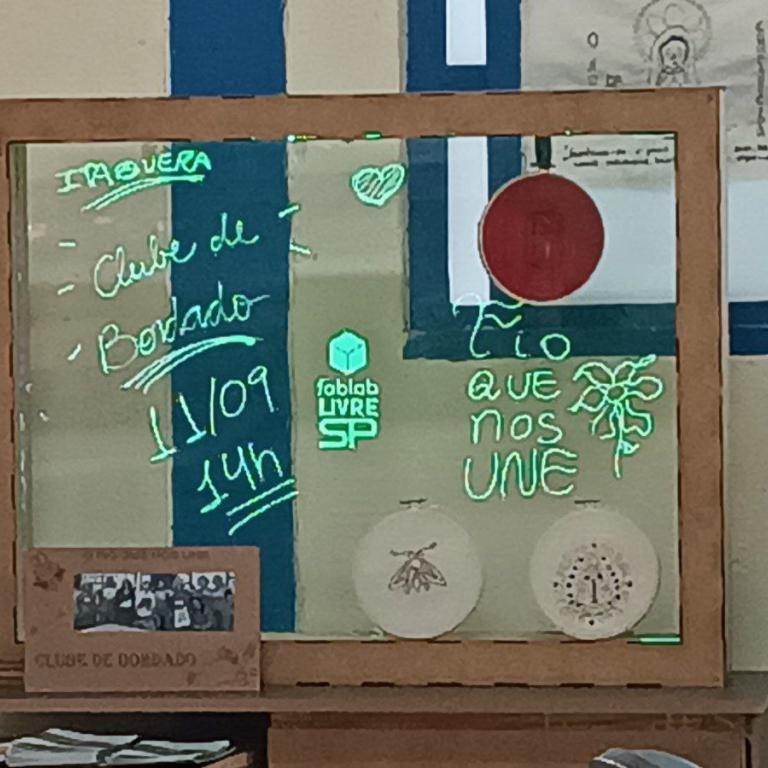 ITAQUERA
Clube de
Bordado
11/09
14h
fablab
LIVRE
SP
Fio
QUE
nos
UNE
O FIO QUE NOS UNE
CLUBE DE BORDADO